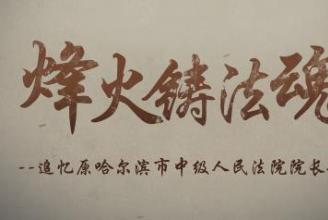 烽火铸法魂
--追忆原哈尔滨市中级人民法院院长